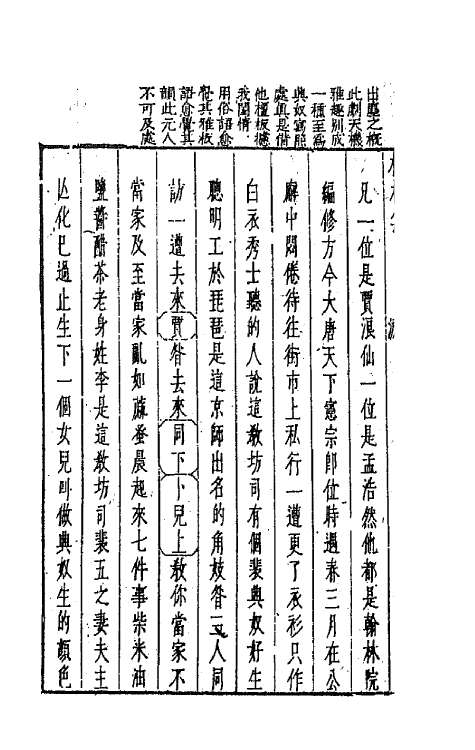 出塵之概
此劇天機
雅趣別成
一種至寫
與奴寫態
處真是借
他檀板摅
我閨情
用俗語愈
覺其雅板
語愈覺其
韻此元人
不可及處
凡一位是賈浪仙一位是孟浩然他都是翰林院
編修方今大唐天下憲宗即位時遇春三月在公
廨中悶倦待往街市上私行一遭更了衣衫只作
白衣秀士聽的人說這教坊司有個裴興奴好生
聰明工於琵琶是這京師出名的角妓咱三人同
訪一遭去來賈咱去來同下卜兒上教你當家不
當家及至當家亂如麻蚤晨起來七件事柴米油
鹽醬醋茶老身姓李是這教坊司裴五之妻夫主
亾化已過止生下一個女兒叫做興奴生的顏色